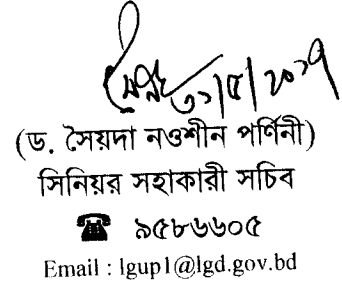 ৩১/৫/২০১৭
(ড. সৈয়দা নওশীন পর্ণিনী)
সিনিয়র সহাকারী সচিব
☎ ৯৫৮৬৬০৫
Email : lgup1@lgd.gov.bd